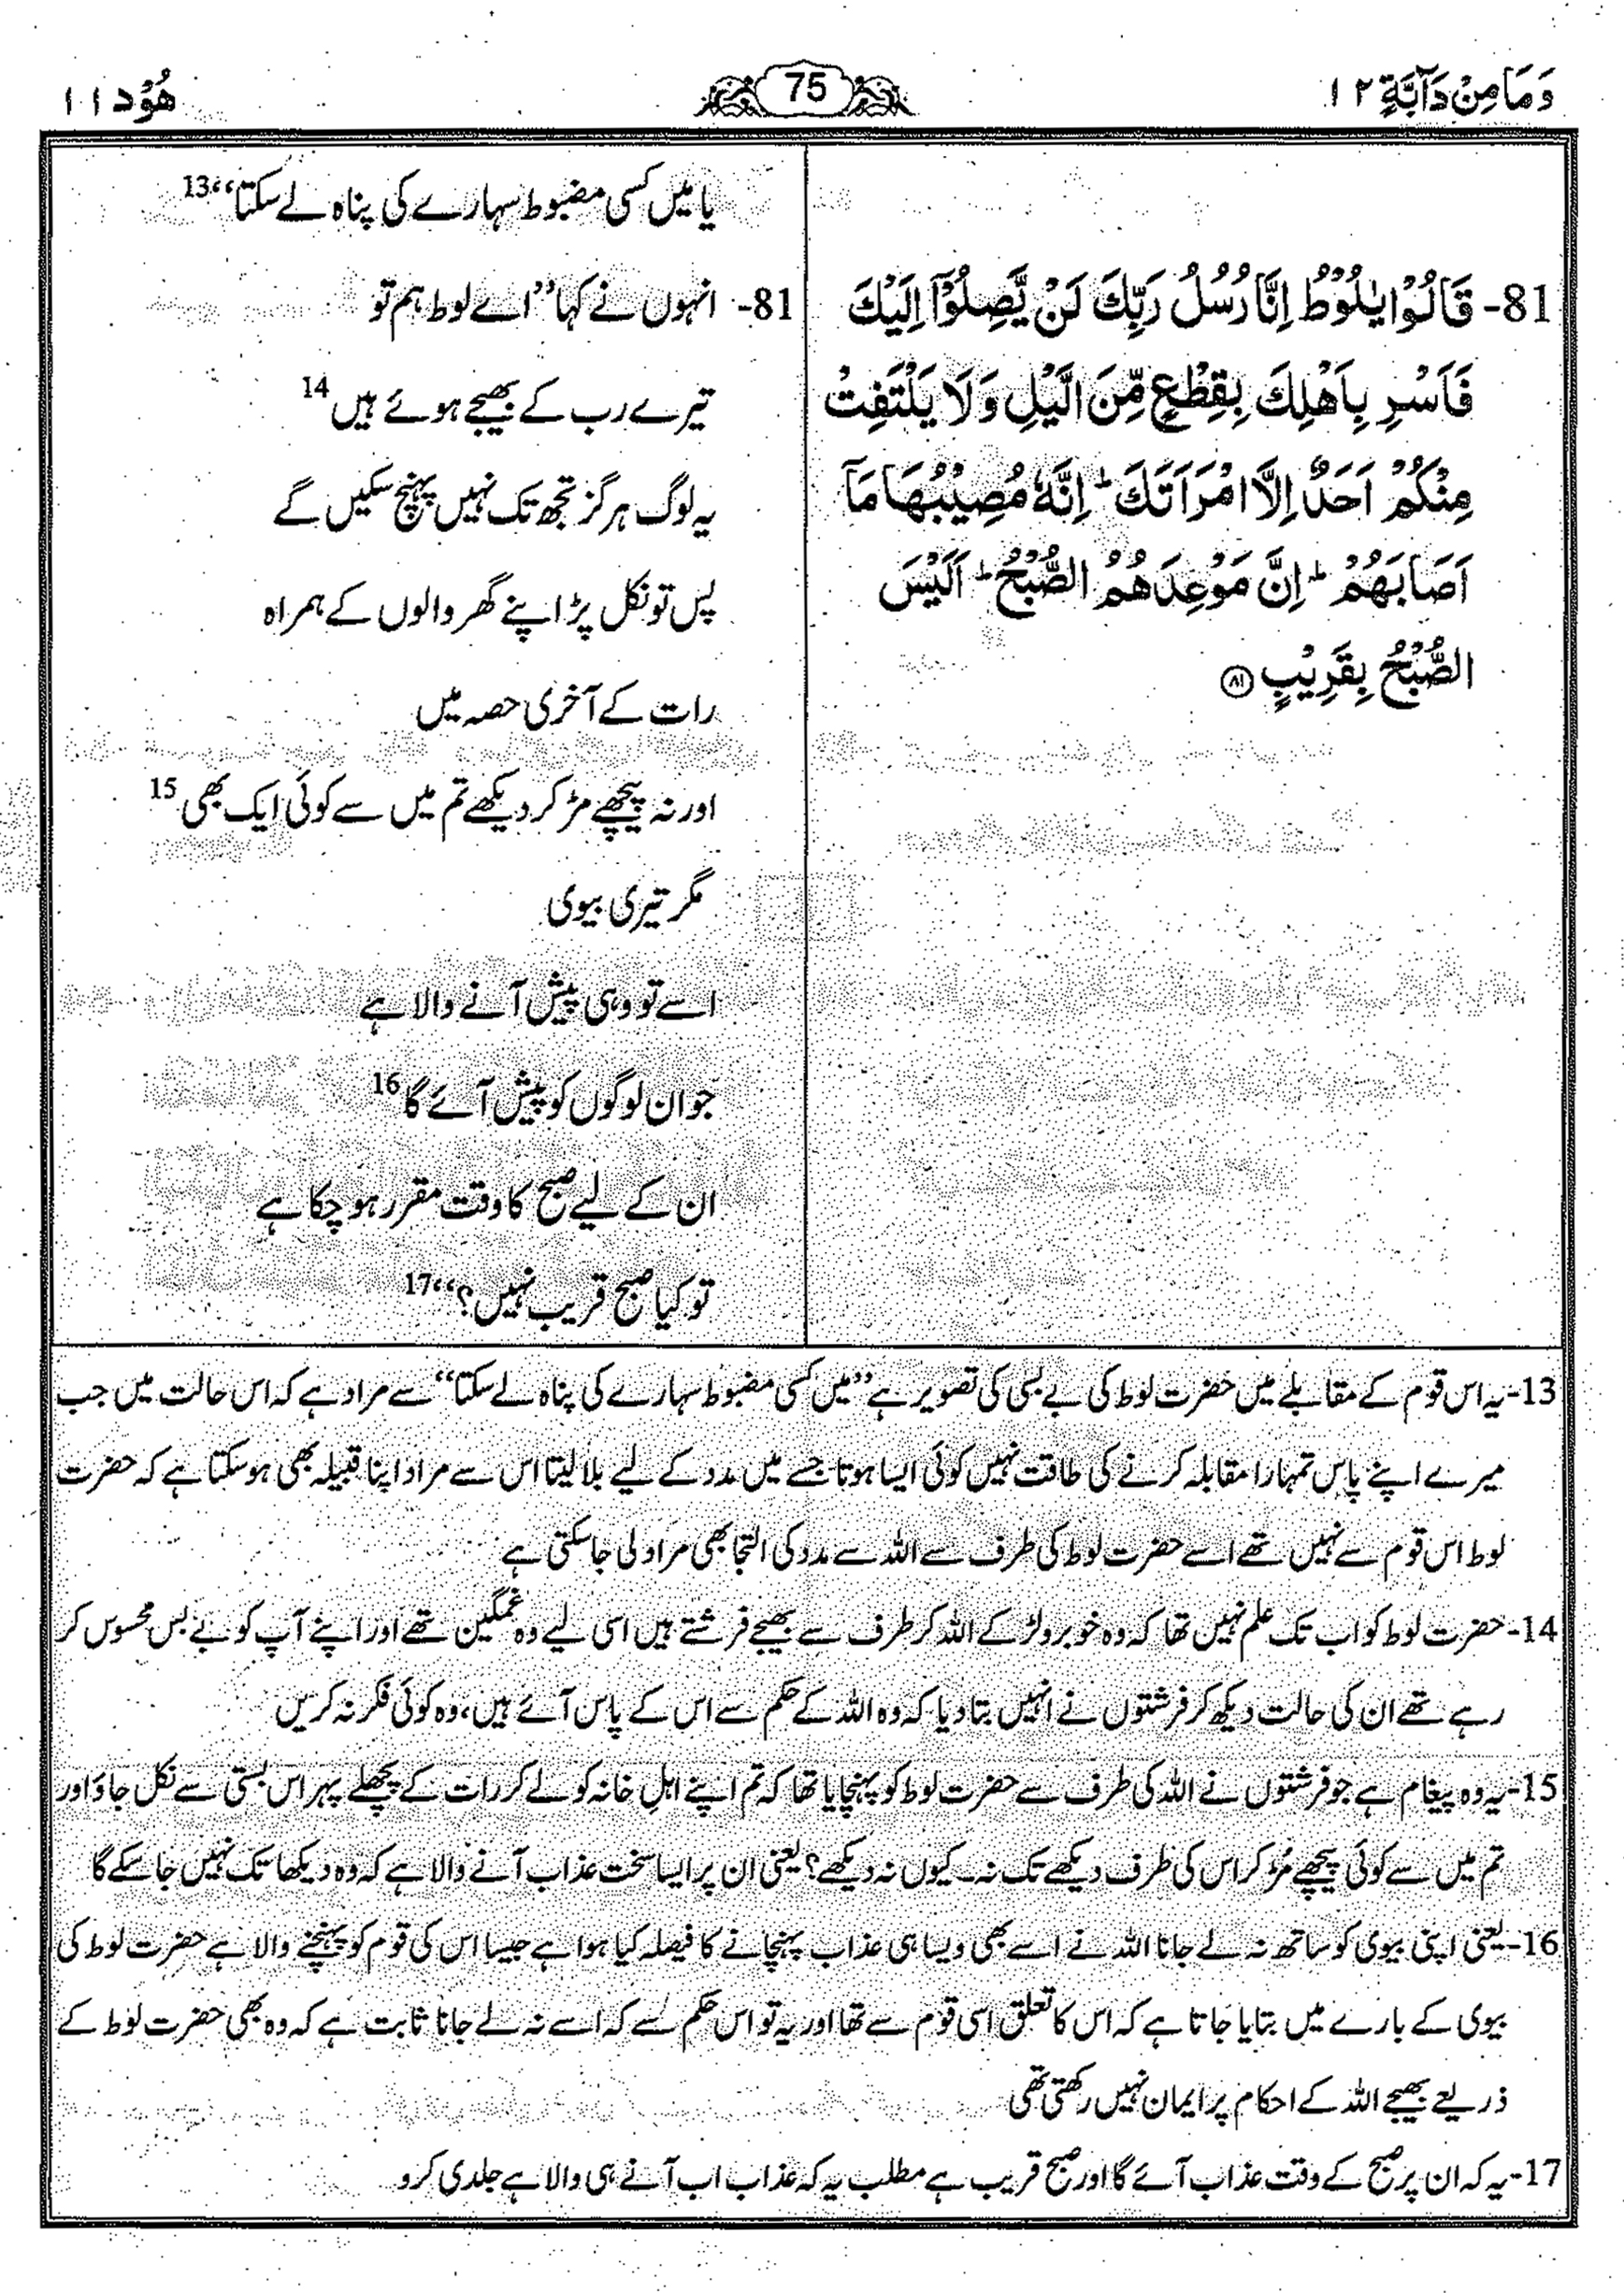 وَمَا مِنْ دَآبَّةٍ ۱۲
75
هُوْد ۱۱
یا میں کسی مضبوط سہارے کی پناہ لے سکتا‘‘13
81- قَالُوْا يٰلُوْطُ اِنَّا رُسُلُ رَبِّكَ لَنْ يَّصِلُوْٓا اِلَيْكَ
فَاَسْرِ بِاَهْلِكَ بِقِطْعٍ مِّنَ الَّيْلِ وَلَا يَلْتَفِتْ
مِنْكُمْ اَحَدٌ اِلَّا امْرَاَتَكَ ؕ اِنَّهٗ مُصِيْبُهَا مَآ
اَصَابَهُمْ ؕ اِنَّ مَوْعِدَهُمُ الصُّبْحُ ؕ اَلَيْسَ
الصُّبْحُ بِقَرِيْبٍ ﴿۸۱﴾
81- انہوں نے کہا ’’اے لوط ہم تو
تیرے رب کے بھیجے ہوئے ہیں 14
یہ لوگ ہرگز تجھ تک نہیں پہنچ سکیں گے
پس تو نکل پڑ اپنے گھر والوں کے ہمراہ
رات کے آخری حصہ میں
اور نہ پیچھے مڑ کر دیکھے تم میں سے کوئی ایک بھی 15
مگر تیری بیوی
اسے تو وہی پیش آنے والا ہے
جو ان لوگوں کو پیش آئے گا 16
ان کے لیے صبح کا وقت مقرر ہو چکا ہے
تو کیا صبح قریب نہیں؟‘‘17
13- یہ اس قوم کے مقابلے میں حضرت لوط کی بے بسی کی تصویر ہے ’’میں کسی مضبوط سہارے کی پناہ لے سکتا‘‘ سے مراد ہے کہ اس حالت میں جب
میرے اپنے پاس تمہارا مقابلہ کرنے کی طاقت نہیں کوئی ایسا ہوتا جسے میں مدد کے لیے بلا لیتا اس سے مراد اپنا قبیلہ بھی ہو سکتا ہے کہ حضرت
لوط اس قوم سے نہیں تھے اسے حضرت لوط کی طرف سے اللہ سے مدد کی التجا بھی مراد لی جا سکتی ہے
14- حضرت لوط کو اب تک علم نہیں تھا کہ وہ خوبرو لڑکے اللہ کر طرف سے بھیجے فرشتے ہیں اسی لیے وہ غمگین تھے اور اپنے آپ کو بے بس محسوس کر
رہے تھے ان کی حالت دیکھ کر فرشتوں نے انہیں بتا دیا کہ وہ اللہ کے حکم سے اس کے پاس آئے ہیں، وہ کوئی فکر نہ کریں
15- یہ وہ پیغام ہے جو فرشتوں نے اللہ کی طرف سے حضرت لوط کو پہنچایا تھا کہ تم اپنے اہلِ خانہ کو لے کر رات کے پچھلے پہر اس بستی سے نکل جاؤ اور
تم میں سے کوئی پیچھے مُڑ کر اس کی طرف دیکھے تک نہ۔ کیوں نہ دیکھے؟ یعنی ان پر ایسا سخت عذاب آنے والا ہے کہ وہ دیکھا تک نہیں جا سکے گا
16- یعنی اپنی بیوی کو ساتھ نہ لے جانا اللہ نے اسے بھی ویسا ہی عذاب پہنچانے کا فیصلہ کیا ہوا ہے جیسا اس کی قوم کو پہنچنے والا ہے حضرت لوط کی
بیوی کے بارے میں بتایا جاتا ہے کہ اس کا تعلق اسی قوم سے تھا اور یہ تو اس حکم سے کہ اسے نہ لے جانا ثابت ہے کہ وہ بھی حضرت لوط کے
ذریعے بھیجے اللہ کے احکام پر ایمان نہیں رکھتی تھی
17- یہ کہ ان پر صبح کے وقت عذاب آئے گا اور صبح قریب ہے مطلب یہ کہ عذاب اب آنے ہی والا ہے جلدی کرو